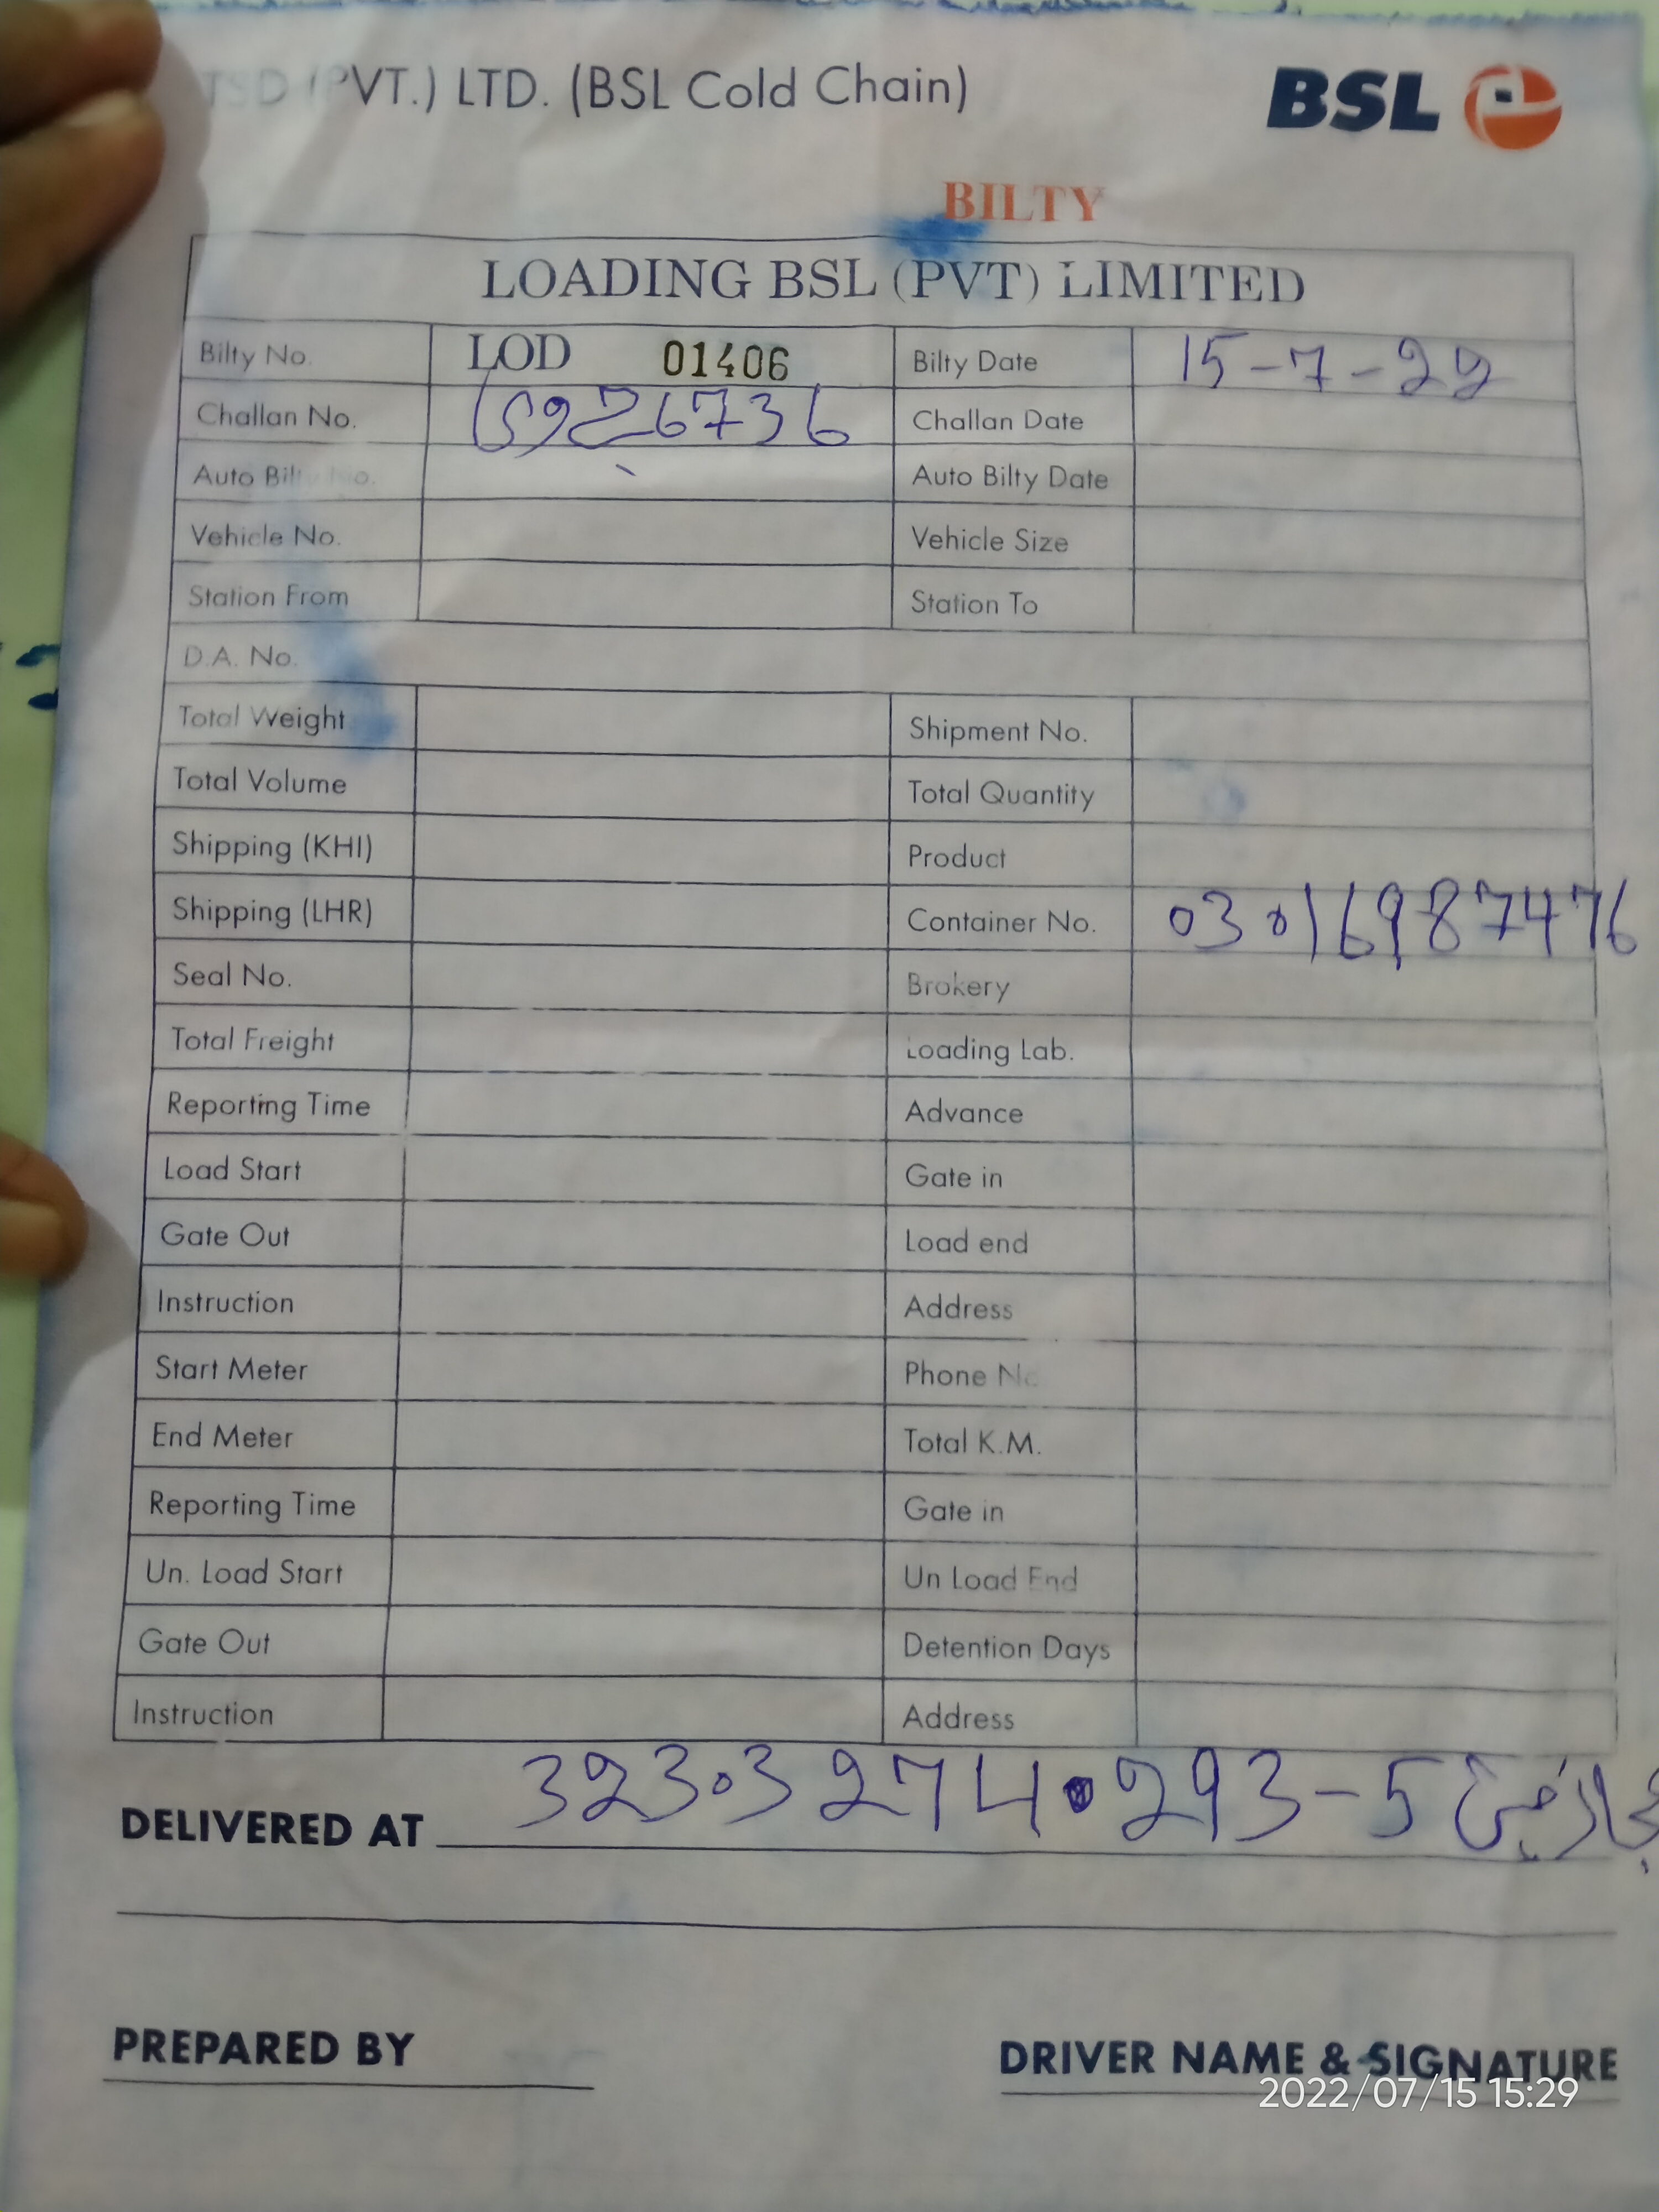 TSD (PVT.) LTD. (BSL Cold Chain)
BSL
BILTY
LOADING BSL (PVT) LIMITED
Bilty No. LOD 01406 Bilty Date 15-7-22
Challan No. Challan Date
Auto Bilty No. Auto Bilty Date
Vehicle No. Vehicle Size
Station From Station To
D.A. No.
Total Weight Shipment No.
Total Volume Total Quantity
Shipping (KHI) Product
Shipping (LHR) Container No. 03016987476
Seal No. Brokery
Total Freight Loading Lab.
Reporting Time Advance
Load Start Gate in
Gate Out Load end
Instruction Address
Start Meter Phone No
End Meter Total K.M.
Reporting Time Gate in
Un. Load Start Un Load End
Gate Out Detention Days
Instruction Address
DELIVERED AT 323.3274.293-5
PREPARED BY DRIVER NAME & SIGNATURE
2022/07/15 15:29